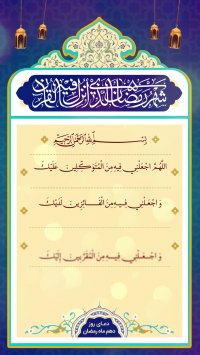 شهر رمضان الذي أنزل فيه القرآن
بسم الله الرحمن الرحيم
اللهم اجعلني فيه من المتوكلين عليك
و اجعلني فيه من الفائزين لديك
و اجعلني فيه من المقربين إليك
دعای روز
دهم ماه رمضان